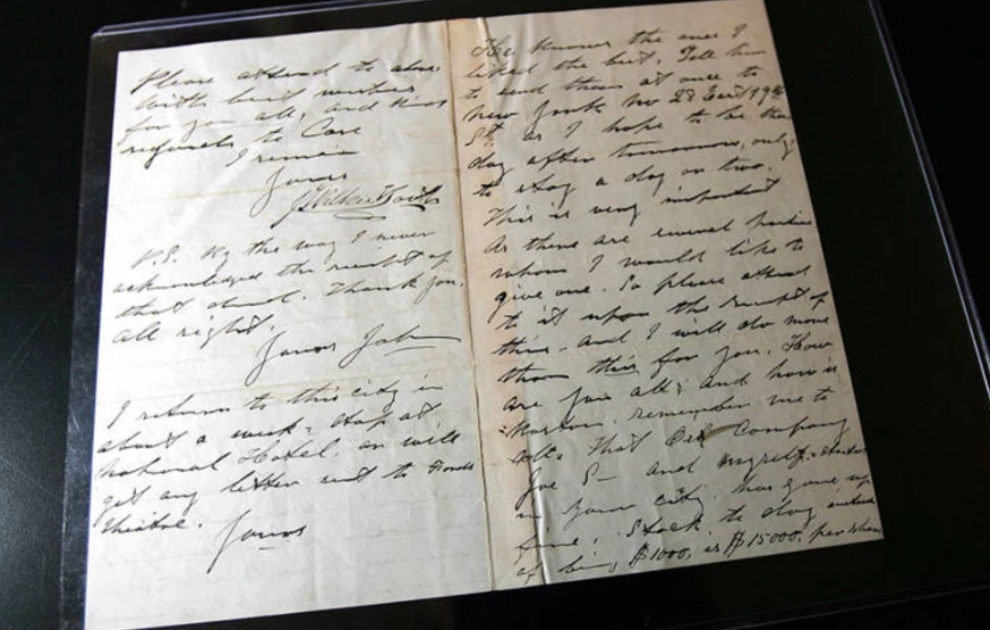 Please attend to above
With best wishes
for you all, and kind
regards to Care
I remain
Yours
J Wilkes Booth
P.S. By the way I never
acknowledged the receipt of
that deed. Thank you.
all right.
Yours John
I return to this city in
about a week. Stop at
National Hotel. or will
get any letter sent to Fords
theatre.
Yours
He knows the ones I
liked the best. Tell him
to send them at once to
New York No 28 East 19th
St. as I hope to be there
day after tomorrow, only
to stay a day or two.
This is very important
As there are several parties
whom I would like to
give one. So please attend
to it upon the receipt of
this. And I will do more
than this for you. How
are you all; And how is
remember me to
all. That Oil Company
Joe S— and myself, started
in your city. has gone up
fine; Stock to day instead
of bing $1000, is $15000, per share